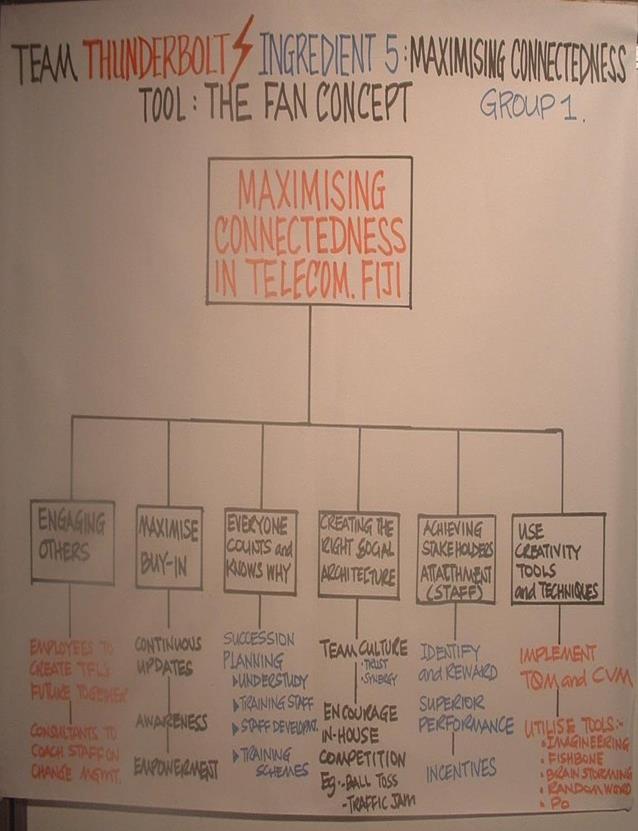 TEAM THUNDERBOLTS INGREDIENT 5: MAXIMISING CONNECTEDNESS
TOOL: THE FAN CONCEPT GROUP 1.
MAXIMISING
CONNECTEDNESS
IN TELECOM. FIJI
ENGAGING
OTHERS
EMPLOYEES TO
CREATE TFL'S
FUTURE TOGETHER
CONSULTANTS TO
COACH STAFF ON
CHANGE MGMT.
MAXIMISE
BUY-IN
CONTINUOUS
UPDATES
AWARENESS
EMPOWERMENT
EVERYONE
COUNTS and
KNOWS WHY
SUCCESSION
PLANNING
▸UNDERSTUDY
▸TRAINING STAFF
▸STAFF DEVELOPMT.
▸TRAINING
SCHEMES
CREATING THE
RIGHT SOCIAL
ARCHITECTURE
TEAM CULTURE
•TRUST
•SYNERGY
ENCOURAGE
IN-HOUSE
COMPETITION
Eg:-BALL TOSS
-TRAFFIC JAM
ACHIEVING
STAKEHOLDERS
ATTATCHMENT
(STAFF)
IDENTIFY
and REWARD
SUPERIOR
PERFORMANCE
INCENTIVES
USE
CREATIVITY
TOOLS
and TECHNIQUES
IMPLEMENT
TQM and CVM
UTILISE TOOLS:-
•IMAGINEERING
•FISHBONE
•BRAIN STORMING
•RANDOM WORD
•PO